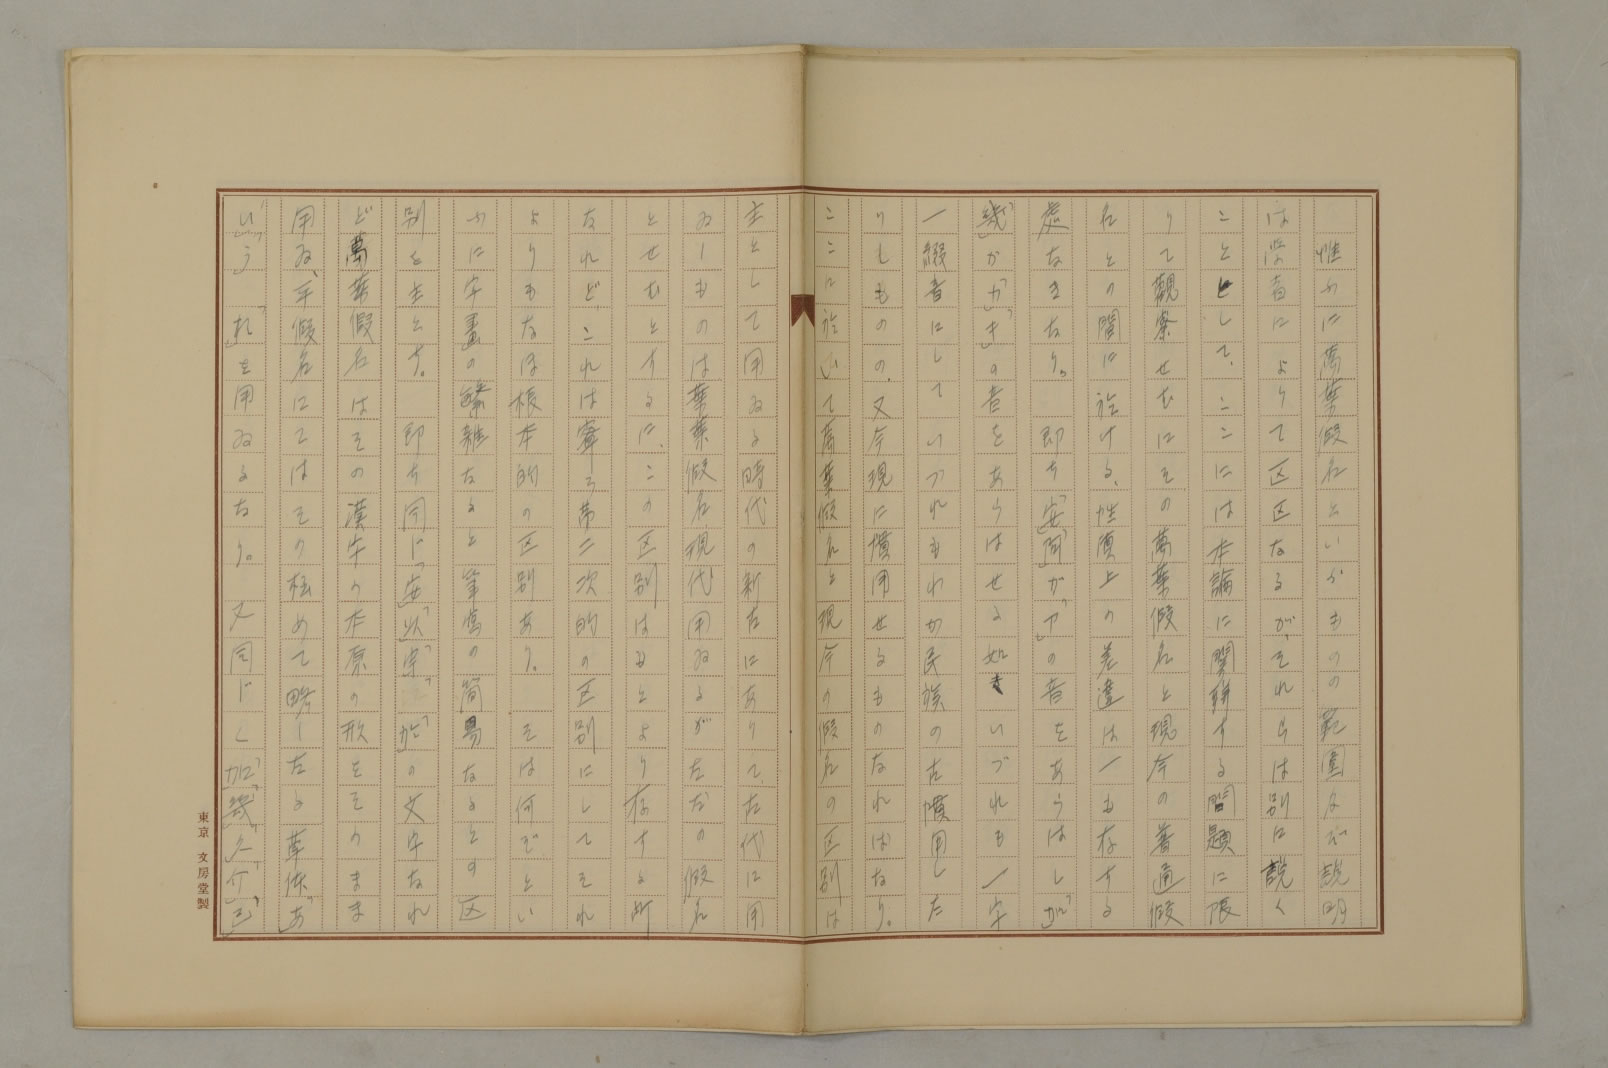 惟ふに萬葉假名といふものの範圍及び説明
は学者によりて区区なるが、それらは別に説く
こととして、ここには本論に関聯する問題に限
りて觀察せむにその萬葉假名と現今の普通假
名との間に於ける、性質上の差違は一も存する
處なきなり。即ち「安」「阿」が「ア」の音をあらはし「加」
「幾」が「カ」「キ」の音をあらはせる如き いづれも一字
一綴音にしていづれもわが民族の古慣用した
りしものの、又今現に慣用せるものなればなり。
ここに於いて萬葉假名と現今の假名の区別は
主として用ゐる時代の新古にありて、古代に用
ゐしものは萬葉假名、現代用ゐるが右右の假名
とせむとするに、この区別はもとより存する所
なれど、これは寧ろ第二次的の区別にしてそれ
よりもなほ根本的の区別あり。そは何ぞとい
ふに字畫の繁雜なると筆寫の簡易なるとの区
別を主とす。即ち同じ「安」「以」「宇」「於」の文字なれ
ど萬葉假名はその漢字の本原の形をそのまま
用ゐ、平假名にてはその極めて略したる草体「あ」
「い」「う」「お」を用ゐるなり。又同じく「加」「幾」「久」「介」「己」
東京 文房堂製